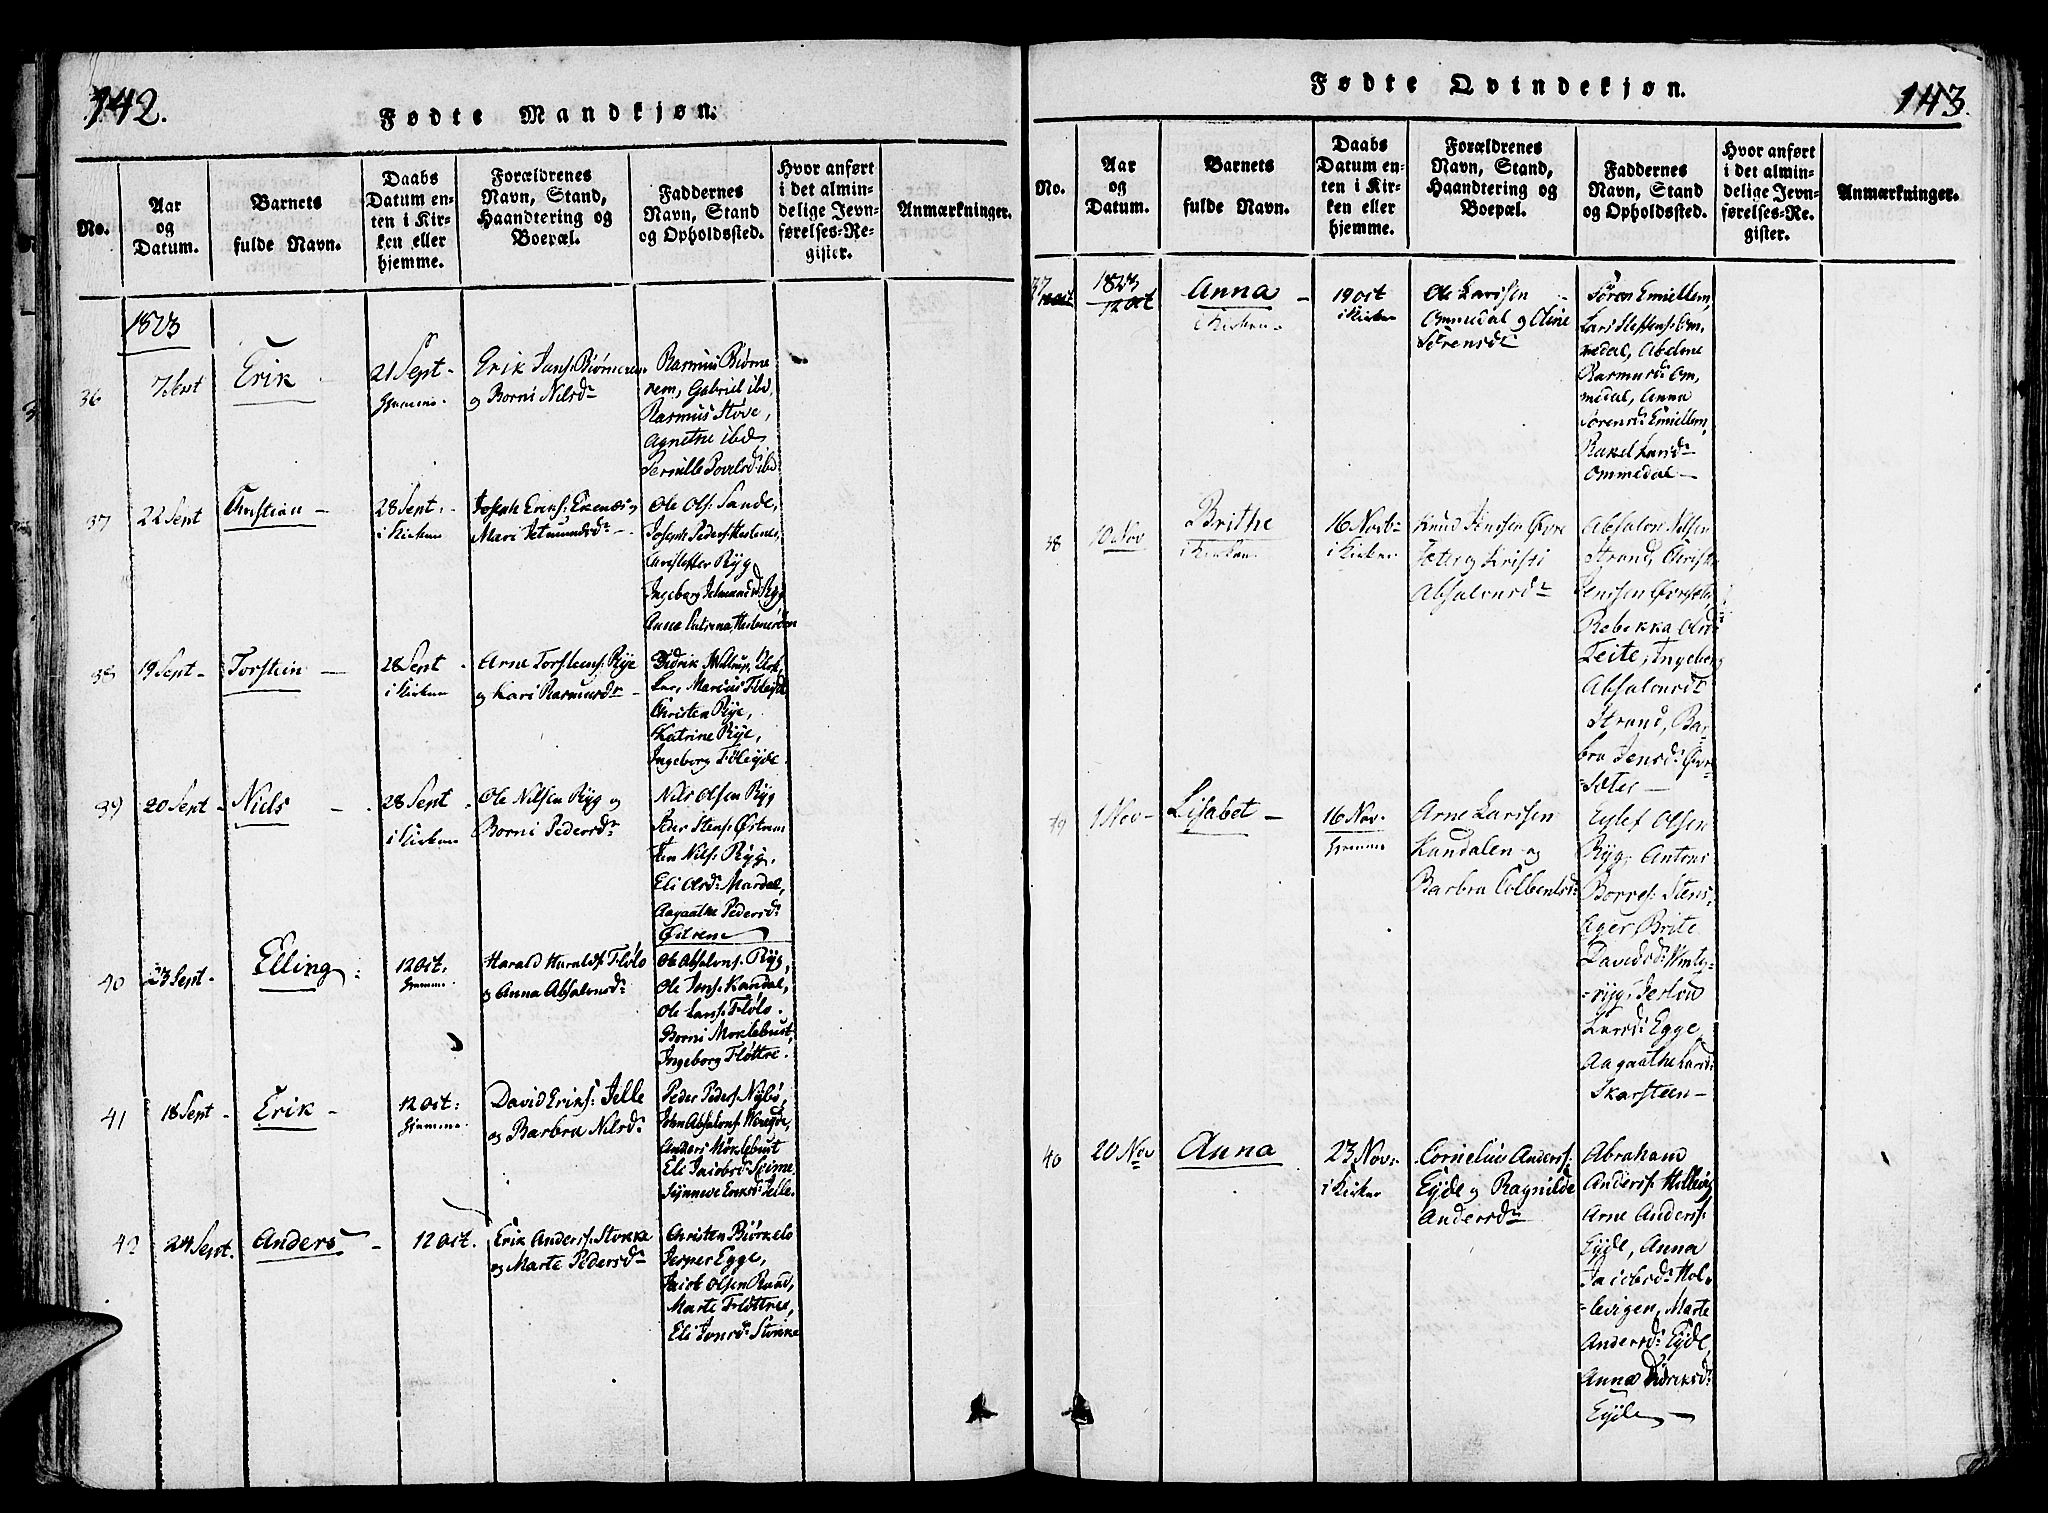 142.
Fødte Mandkjøn.
No.
Aar
og
Datum.
Barnets
fulde Navn.
Daabs
Datum en-
ten i Kir-
ken eller
hjemme.
Forældrenes
Navn, Stand,
Haandtering og
Boepæl.
Faddernes
Navn, Stand
og Opholdssted.
Hvor anført
i det almin-
delige Jevn-
førelses-Re-
gister.
Anmærkninger.
1823
36
7 Sept
Erik
21 Sept -
Hjemme.
Erik Jens: Biørnerem
og Borni Nilsdr
Rasmus Biørne
rem, Gabriel ibd,
Rasmus Støve,
Agnethe ibd
Pernille Povelsd: ibd
37
22 Sept
Christian -
28 Sept.
i Kirken
Joseph Eriks:
Mari Jetmundsdr -
Ole Ols: Sande,
Joseph Peders:
Christopher Ryg
Ingeborg Jetmundsd Ryg
Anne Petrina
38
19 Sept -
Torstein -
28 Sept
i Kirken
Arne Torstens: Rye
og Kari Rasmusdr -
Didrik
Marcus Føleyde
Christen Rye,
Katrine Rye,
Ingeborg Føleyde.
39
20 Sept -
Niels -
28 Sept
i Kirken
Ole Nilsen Ryg og
Borni Pedersdr
Nils Olsen Ryg
Peder Stens: Østrem
Sten Nils: Ryg,
Eli Olsdr Mardal,
Aagaathe Pedersdr
Østrem
40
23 Sept -
Elling
12 Oct.
Hjemme.
Harald Haralds: Fløtø
og Anna Absalonsdr
Ole Absalons: Ryg,
Ole Jons: Kandal,
Ole Lars: Fløtø.
Borni Moklebust,
Ingeborg Fløttre.
41
18 Sept -
Erik -
12 Oct:
Hjemme.
David Eriks: Jelle
og Barbra Nilsdr
Peder Peders: Nybø,
John Absalons:
Anders Møklebust
Eli Jacobsd: Seime
Synneve Eriksd: Jelle.
42
24 Sept.
Anders -
12 Oct.
Erik Anders: Stokke
og Marte Pedersdr
Christen Biørkelo
Jesper Egge,
Jacob Olsen Rand,
Marte Fløttre,
Eli Jonsd: Stokke
Fødte Qvindekjøn.
143.
No.
Aar
og
Datum.
Barnets
fulde Navn.
Daabs
Datum en-
ten i Kir-
ken eller
hjemme.
Forældrenes
Navn, Stand,
Haandtering og
Boepæl.
Faddernes
Navn, Stand
og Opholdssted.
Hvor anført
i det almin-
delige Jevn-
førelses-Re-
gister.
Anmærkninger.
37
1823
12 Oct
Anna -
i Kirken
19 Oct
i Kirken
Ole Larssen
Ommedal og Oline
Sørensdr
Søren Emiellem,
Lars Steffens: Om,
medal, Abelone
Rasmusd: Om,
medal, Anna
Sørensd: Emiellem,
Rakel Larsdr
Ommedal -
38
10 Nov
Brithe
i Kirken
16 Novb:
i Kirken
Knud Jenssen Øvre
Sæter og Kristi
Absalonsdr
Absalon Nilsen
Strand, Christen
Jenssen Øvresæter
Rebekka Olsd:
Teite, Ingeborg
Absalonsdr
Strand, Bar-
bra Jensd: Øvre
=Sæter -
39
1 Nov -
Lisabet -
16 Nov.
Hjemme
Arne Larssen
Kandalen og
Barbra Tolbentsdr
Eylef Olsen
Ryg, Antoni
Borres: Stens,
Eger Brite
Davidsd:
=ryg,
Larsd: Egge,
Aagaathe Larsd:
Skarsteen -
40
20 Nov
Anna
23 Nov.
i Kirken
Cornelius Anders:
Eyde og Ragnilde
Andersdr
Abraham
Anders: Hellevig,
Arne Anders:
Eyde, Anna
Jacobsdr Hol,
=evigen, Marte
Andersd: Eyde
Anna Didriksd:
Eyde -